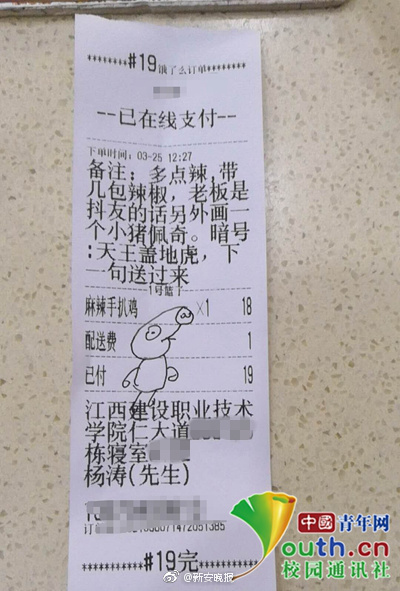 ********#19饿了么订单********
--已在线支付--
下单时间: 03-25 12:27
备注: 多点辣,带
几包辣椒, 老板是
抖友的话另外画一
个小猪佩奇。暗号
:天王盖地虎, 下
一句送过来
1号篮子
麻辣手扒鸡 ×1 18
配送费 1
已付 19
江西建设职业技术
学院仁大道
栋寝室
杨涛(先生)
********#19完********
@新安晚报
中國青年网
Youth.cn
校园通讯社